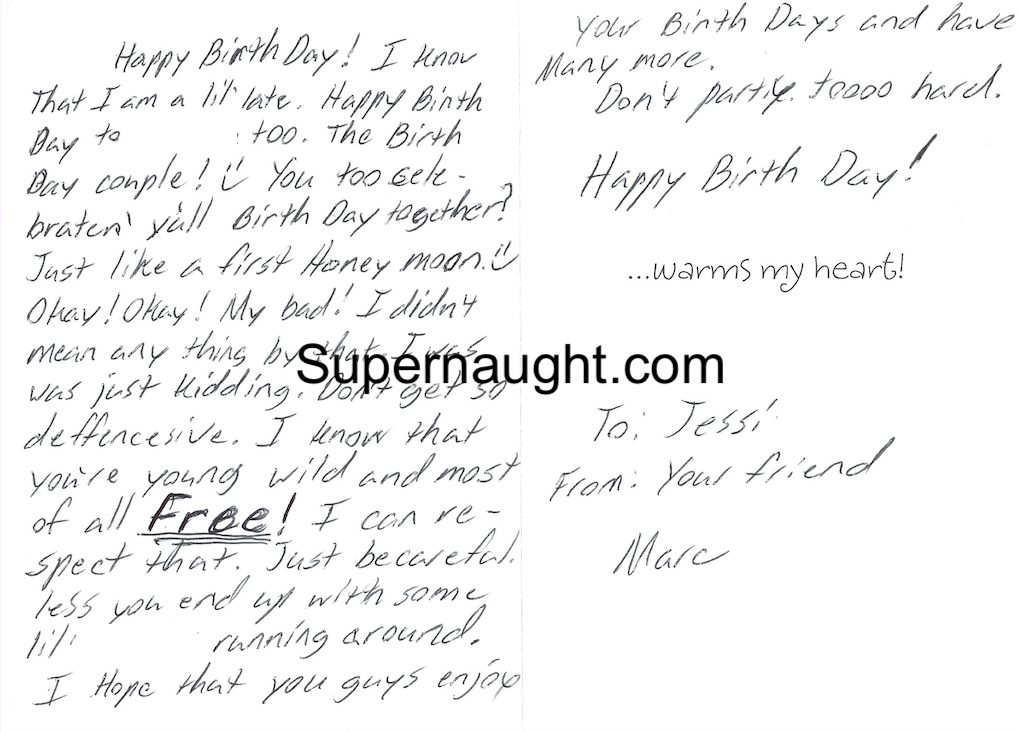 Happy Birth Day! I know
That I am a lil' late. Happy Birth
Day to too. The Birth
Day couple! You too cele-
braten' y'all Birth Day together?
Just like a first Honey moon.
Okay! Okay! My bad! I didn't
mean any thing by that. I was
was just kidding. Don't get so
deffencesive. I know that
you're young wild and most
of all Free! I can re-
spect that. Just becareful.
less you end up with some
lil' running around.
I Hope that you guys enjoy
your Birth Days and have
Many more.
Don't party. toooo hard.
Happy Birth Day!
...warms my heart!
Supernaught.com
To: Jessi
From: Your friend
Marc